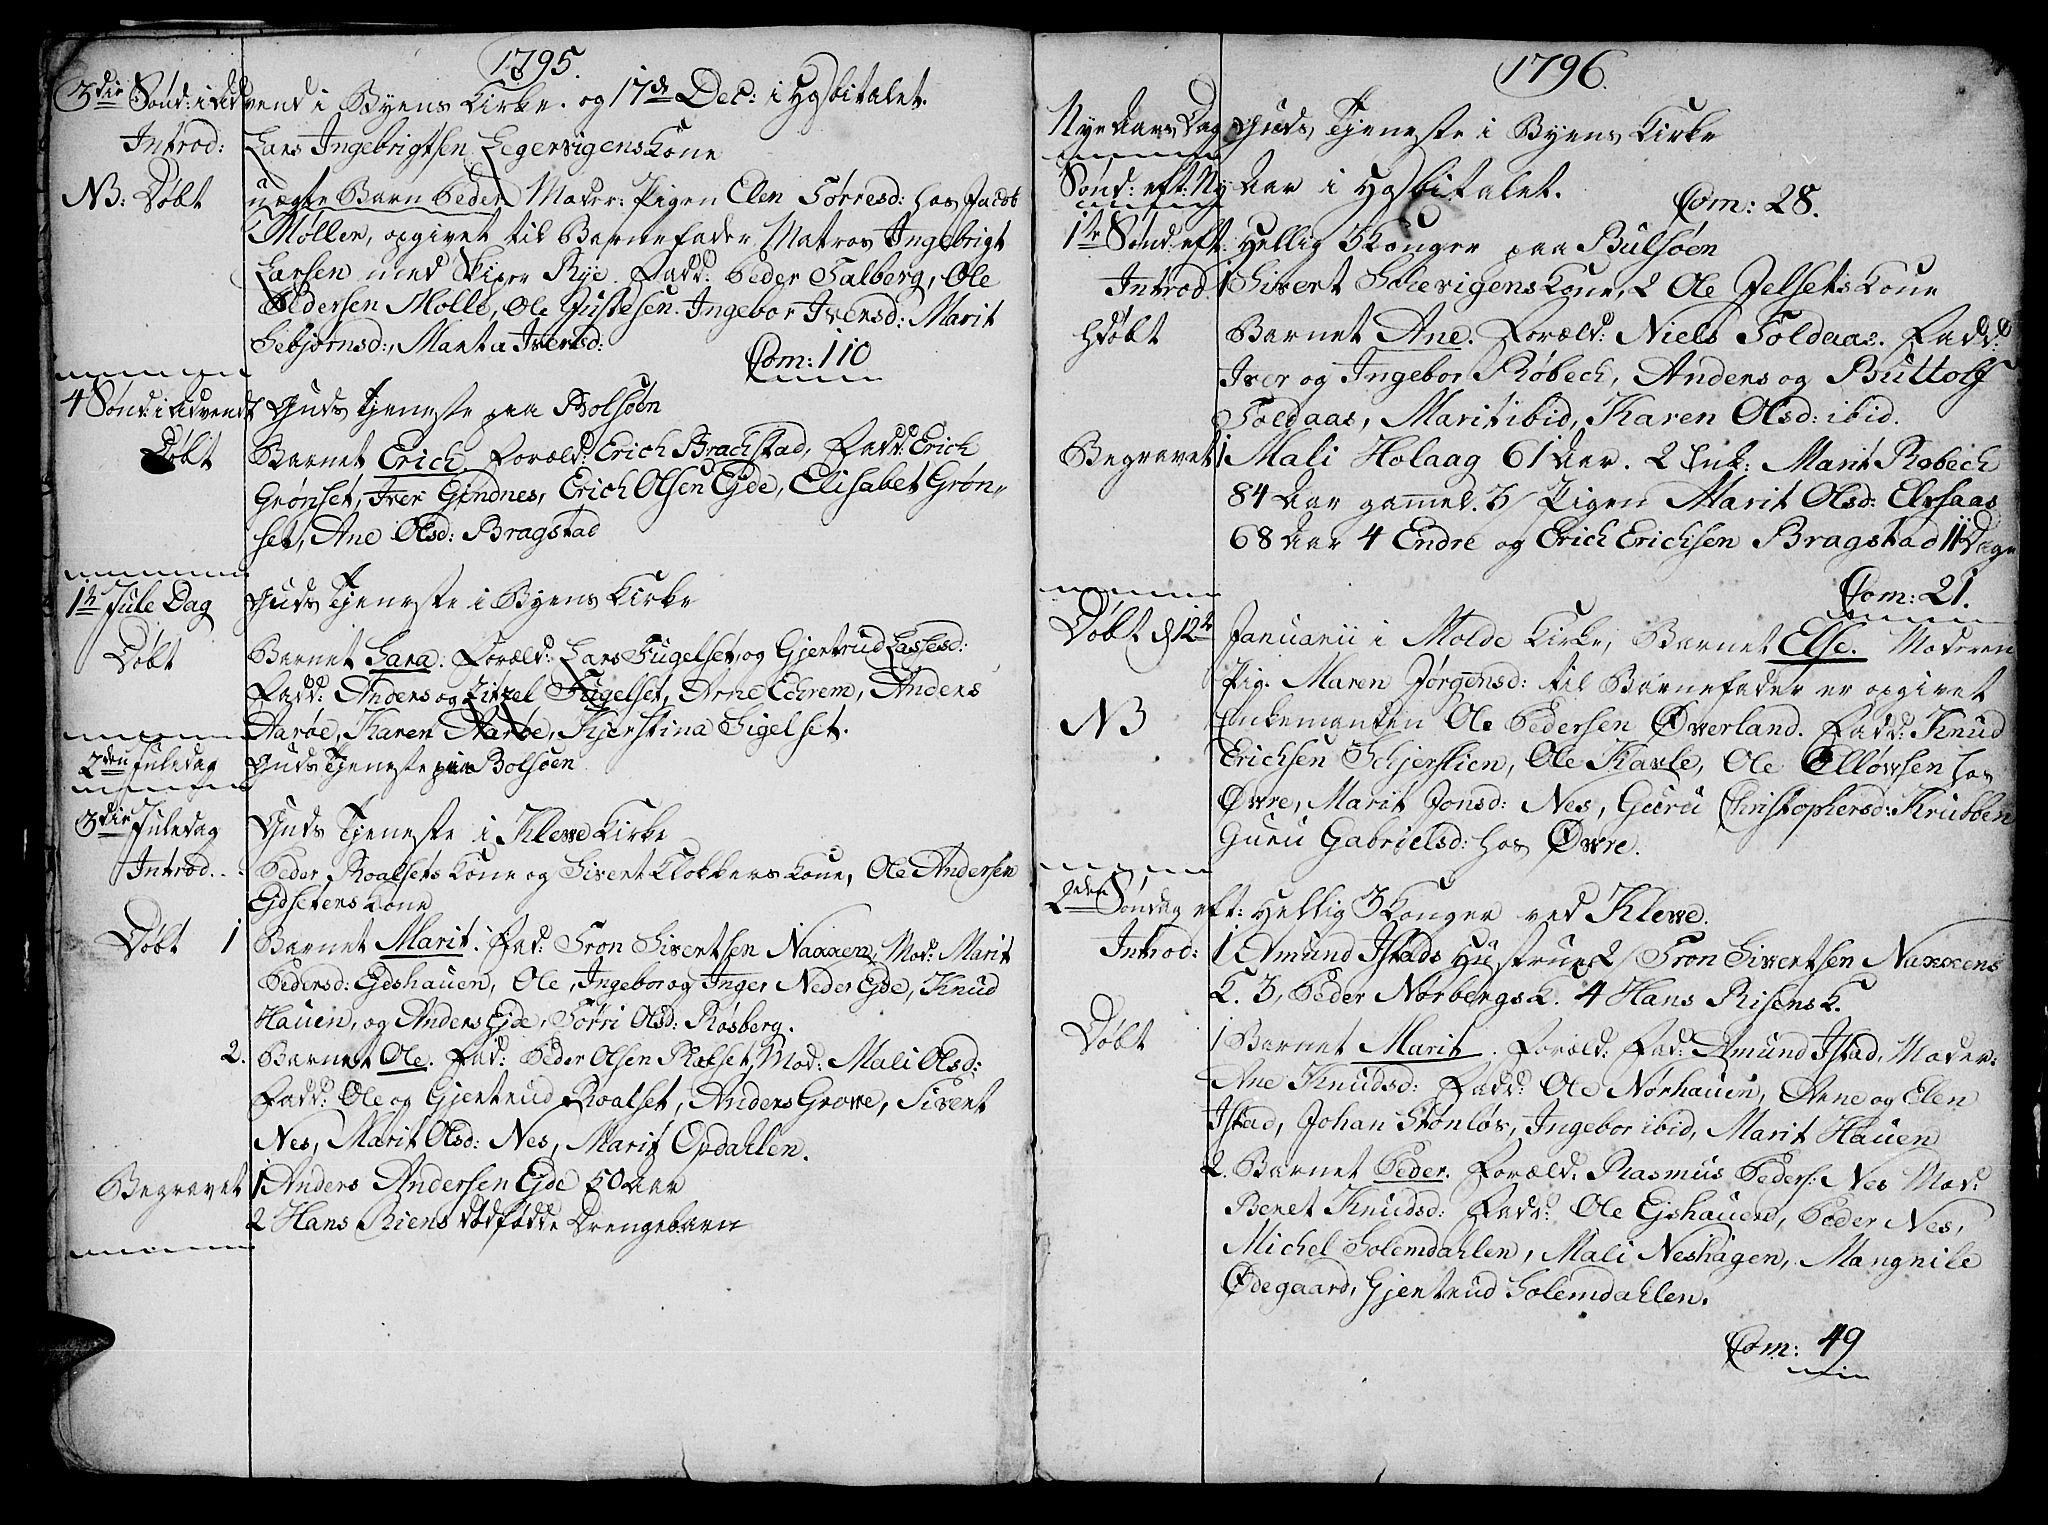 1795.
3die Sønd: i Advend i Byens Kirke. og 17de Dec: i Hosbitalet.
Introd: Lars Ingebrigtsen Legervigens Kone
NB: Døbt uægte Barn Peder Moder: Pigen Elen Torresd: hos Jacob
Møller, opgivet til Barnefader Matros Ingebrigt
Larsen med Skiper Rye. Fadd: Peder Talberg, Ole
Pedersen Molle, Ole Gustesen. Ingebor Iversd: Marit
Sebjørnsd:, Marta Iversd:
Com: 110
4 Sønd: i Advendt Guds Tjeneste paa Bolsøen
Døbt Barnet Erich. Foræld: Erich Brachstad, Fadd: Erich
Grønset, Iver Gjendnes, Erich Olsen Ejde, Elisabet Grøn-
set, Ane Olsd: Bragstad
1ste Jule Dag Guds Tjeneste i Byens Kirke
Døbt Barnet Sara. Foræld: Lars Fugelset, og Gjertrud Lassesd:
Fadd: Anders og Zitzel Fugelset, Arne Echrem, Anders
Aarøe, Karen Aarøe, Kjerstina Sigelset.
2den Juledag Guds Tjeneste paa Bolsøen
3die Juledag Guds Tjeneste i Kleve Kirke
Introd. Peder Roalsets Kone og Sivert Klokkers Kone, Ole Andersen
Ejdsetens Kone
Døbt 1 Barnet Marit. Fad: Tron Sivertsen Naxxen, Mod: Marit
Pedersd: Ejdshauen, Ole, Ingebor og Inger Neder Ejde, Knud
Hauen, og Anders Ejde, Torri Olsd: Røsberg.
2. Barnet Ole. Fad: Peder Olsen Roalset, Mod: Mali Olsd:
Fadd: Ole og Gjertrud Roalset, Anders Grove, Sivert
Nes, Marit Olsd: Nes, Marit Opdahlen.
Begravet 1 Anders Andersen Ejde 50 Aar
2 Hans Riens dødfødde Drengebarn
1796.
Nye Aars Dag Guds Tjeneste i Byens Kirke
Sønd: eft: Ny Aar i Hosbitalet.
Com: 28.
1te Sønd: eft: Hellig 3 Konger paa Bulsøen
Introd. 1 Sivert Solevigens Kone, 2 Ole Jelsets Kone
Hdøbt Barnet Ane. Foræld: Niels Toldaas. Fadd:
Iver og Ingebor Røbech, Anders og Buttolf
Toldaas, Marit ibid, Karen Olsd: ibid.
Begravet 1 Mali Holaag 61 Aar. 2 Enk: Marit Røbech
84 Aar gammel. 3 Pigen Marit Olsd: Elvsaas
68 Aar 4 Endre og Erich Erichsen Bragstad 11 Dage
Com: 21.
Døbt d 12te Januarii i Molde Kirke, Barnet Else. Moderen
Pig. Maren Jørgensd: til Barnefader er opgivet
NB Enkemanden Ole Pedersen Øverland. Fadd: Knud
Erichsen Schjerslien, Ole Kavle, Ole Elløvsen hos
Øvre, Marit Jonsd: Nes, Guru Christophersd: Kruboen
Guru Gabrielsd: hos Øvre.
2den Søndag eft: Hellig 3 Konger ved Kleve.
Introd: 1 Amund Istads Hustrue 2 Tron Sivertsen Naxxens
K. 3, Peder Norbergs K. 4 Hans Risens K.
Døbt 1 Barnet Marit. Foræld: Fad: Amund Istad, Moder:
Ane Knudsd: Fadd: Ole Nørhauen, Arne og Elen
Istad, Johan Stonløs, Ingebor ibid, Marit Hauen
2. Barnet Peder. Foræld: Rasmus Peders: Nes Mod:
Beret Knudsd: Fadd: Ole Ejshauen, Peder Nes,
Michel Solemdahlen, Mali Neshagen, Mangnile
Ødegaard, Gjertrud Solemdahlen.
Com: 49